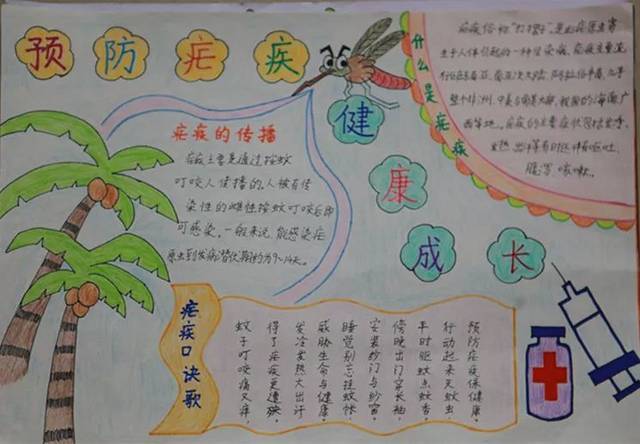 预防疟疾
健康成长
什么是疟疾
疟疾俗称"打摆子"，是由疟原虫寄
生于人体引起的一种传染病，疟疾主要流
整个非洲、中美与南美大陆，我国的海南、广
西等地。疟疾的主要症状包括发冷、
发热、出汗等有时还伴有呕吐、
腹泻、咳嗽。
疟疾的传播
疟疾主要是通过按蚊
叮咬人传播的。人被有传
染性的雌性按蚊叮咬后即
可感染。一般来说，能感染疟
原虫到发病潜伏期约为9~14天。
疟疾口诀歌
预防疟疾保健康。
行动起来灭蚊虫
平时驱蚊点蚊香。
傍晚出门穿长袖，
安装纱门与纱窗。
睡觉别忘挂蚊帐，
威胁生命与健康。
发冷发热大出汗
得了疟疾更遭殃。
蚊子叮咬痛又痒，